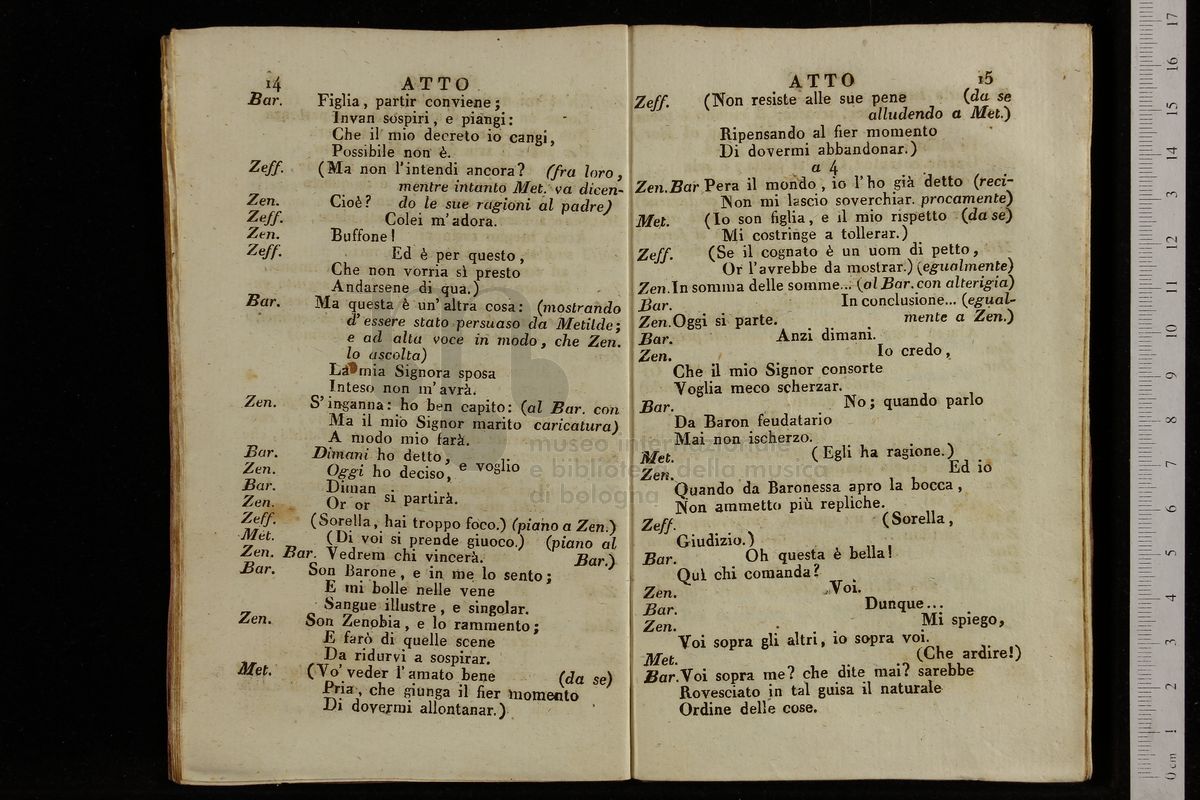 14 ATTO
Bar. Figlia, partir conviene;
Invan sospiri, e piangi:
Che il mio decreto io cangi,
Possibile non è.
Zeff. (Ma non l'intendi ancora? (fra loro,
mentre intanto Met. va dicen-
Zen. Cioè? do le sue ragioni al padre)
Zeff. Colei m'adora.
Zen. Buffone!
Zeff. Ed è per questo,
Che non vorria sì presto
Andarsene di qua.)
Bar. Ma questa è un'altra cosa: (mostrando
d'essere stato persuaso da Metilde;
e ad alta voce in modo, che Zen.
lo ascolta)
La mia Signora sposa
Inteso non m'avrà.
Zen. S'inganna: ho ben capito: (al Bar. con
Ma il mio Signor marito caricatura)
A modo mio farà.
Bar. Dimani ho detto,
Zen. Oggi ho deciso, e voglio
Bar. Diman
Zen. Or or si partirà.
Zeff. (Sorella, hai troppo foco.) (piano a Zen.)
Met. (Di voi si prende giuoco.) (piano al
Zen. Bar. Vedrem chi vincerà. Bar.)
Bar. Son Barone, e in me lo sento;
E mi bolle nelle vene
Sangue illustre, e singolar.
Zen. Son Zenobia, e lo rammento;
E farò di quelle scene
Da ridurvi a sospirar.
Met. (Vo' veder l'amato bene (da se)
Pria, che giunga il fier momento
Di dovermi allontanar.)
ATTO 15
Zeff. (Non resiste alle sue pene (da se
alludendo a Met.)
Ripensando al fier momento
Di dovermi abbandonar.)
a 4
Zen.Bar Pera il mondo, io l'ho già detto (reci-
Non mi lascio soverchiar. procamente)
Met. (Io son figlia, e il mio rispetto (da se)
Mi costringe a tollerar.)
Zeff. (Se il cognato è un uom di petto,
Or l'avrebbe da mostrar.) (egualmente)
Zen. In somma delle somme... (al Bar. con alterigia)
Bar. In conclusione... (egual-
Zen. Oggi si parte. mente a Zen.)
Bar. Anzi dimani.
Zen. Io credo,
Che il mio Signor consorte
Voglia meco scherzar.
Bar. No; quando parlo
Da Baron feudatario
Mai non ischerzo.
Met. (Egli ha ragione.)
Zen. Ed io
Quando da Baronessa apro la bocca,
Non ammetto più repliche.
Zeff. (Sorella,
Giudizio.)
Bar. Oh questa è bella!
Quì chi comanda?
Zen. Voi.
Bar. Dunque...
Zen. Mi spiego,
Voi sopra gli altri, io sopra voi.
Met. (Che ardire!)
Bar. Voi sopra me? che dite mai? sarebbe
Rovesciato in tal guisa il naturale
Ordine delle cose.
museo internazionale
e biblioteca della musica
di bologna
0 cm 1 2 3 4 5 6 7 8 9 10 11 12 13 14 15 16 17